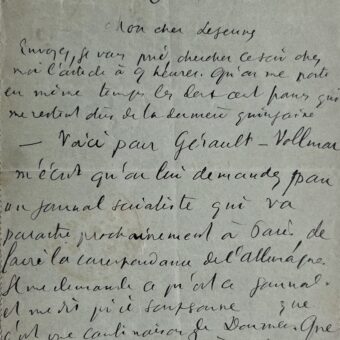 Mon cher Lejeune
Envoyez, je vous prie, chercher ce soir chez
moi l'article à 9 heures. Qu'on me porte
en même temps les deux cent francs qui
me restent dûs de la dernière quinzaine
— Voici pour Gérault — Vollmar
m'écrit qu'on lui demande pour
un journal socialiste qui va
paraître prochainement à Paris de
faire la correspondance de l'Allemagne.
Il me demande ce qu'est ce journal.
et me dit qu'il soupçonne que
c'est une combinaison de